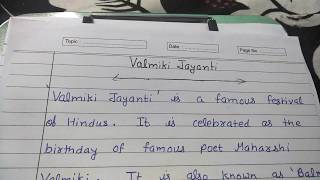 Topic
Date
Page No
Valmiki Jayanti
'Valmiki Jayanti' is a famous festival
of Hindus. It is celebrated as the
birthday of famous poet Maharshi
Valmiki. It is also known as 'Balm